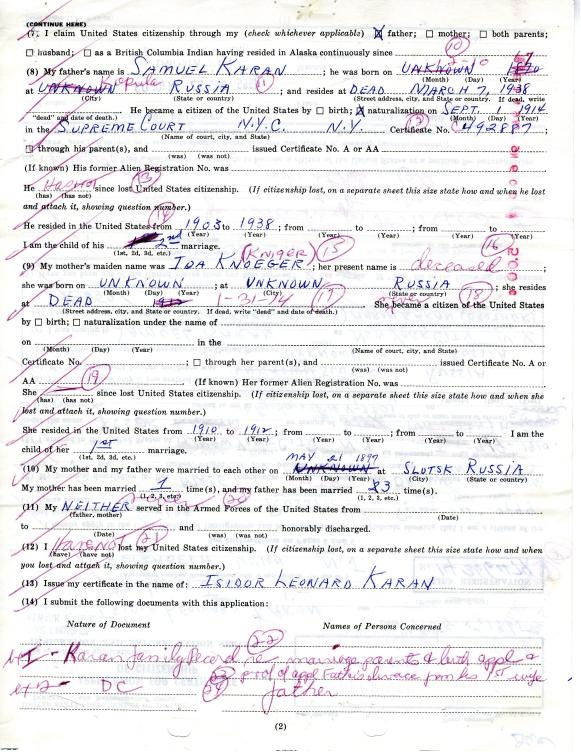 (CONTINUE HERE)
(7) I claim United States citizenship through my (check whichever applicable) ☒ father; ☐ mother; ☐ both parents;
☐ husband; ☐ as a British Columbia Indian having resided in Alaska continuously since
(10)
(8) My father's name is SAMUEL KARAN ; he was born on UNKNOWN
(Month) (Day) (Year)
at UNKNOWN RUSSIA (11) ; and resides at DEAD MARCH 7, 1938
(City) (State or country) (Street address, city, and State or country. If dead, write
"dead" and date of death.) He became a citizen of the United States by ☐ birth; ☒ naturalization on SEPT. 1914
(Month) (Day) (Year)
in the SUPREME COURT N.Y.C. N.Y. Certificate No. 492887
(Name of court, city, and State)
☐ through his parent(s), and issued Certificate No. A or AA
(was) (was not)
(If known) His former Alien Registration No. was
He Has not (13) since lost United States citizenship. (If citizenship lost, on a separate sheet this size state how and when he lost
(has) (has not)
and attach it, showing question number.) (14)
He resided in the United States from 1903 to 1938 ; from to ; from to
(Year) (Year) (Year) (Year) (Year) (Year)
I am the child of his 2nd marriage. (KRIGER) (15) (16)
(1st, 2d, 3d, etc.)
(9) My mother's maiden name was IDA KNOEGER ; her present name is deceased ;
she was born on UNKNOWN ; at UNKNOWN RUSSIA ; she resides
(Month) (Day) (Year) (City) (State or country)
at DEAD 1-31-24 (17) (18) She became a citizen of the United States
(Street address, city, and State or country. If dead, write "dead" and date of death.)
by ☐ birth; ☐ naturalization under the name of
on in the
(Month) (Day) (Year) (Name of court, city, and State)
Certificate No. ; ☐ through her parent(s), and issued Certificate No. A or
(was) (was not)
AA (19) (If known) Her former Alien Registration No. was
She since lost United States citizenship. (If citizenship lost, on a separate sheet this size state how and when she
(has) (has not)
lost and attach it, showing question number.)
She resided in the United States from 1910 to 1912 ; from to ; from to I am the
(Year) (Year) (Year) (Year) (Year) (Year)
child of her 1st marriage.
(1st, 2d, 3d, etc.)
MAY 21 1897
(10) My mother and my father were married to each other on UNKNOWN at SLUTSK RUSSIA
(Month) (Day) (Year) (City) (State or country)
My mother has been married 1 time(s), and my father has been married 3 time(s).
(1, 2, 3, etc.) (1, 2, 3, etc.)
(11) My NEITHER served in the Armed Forces of the United States from
(father, mother) (Date)
to and honorably discharged.
(Date) (was) (was not)
(12) I Have not (21) lost my United States citizenship. (If citizenship lost, on a separate sheet this size state how and when
(have) (have not)
you lost and attach it, showing question number.)
(13) Issue my certificate in the name of: ISIDOR LEONARD KARAN
(14) I submit the following documents with this application:
Nature of Document Names of Persons Concerned
(22)
ex I - Karan family Record re marriage parents & birth appl &
ex 2 - DC (23) proof of appl father's divorce from his 1st wife
(24) father
(2)